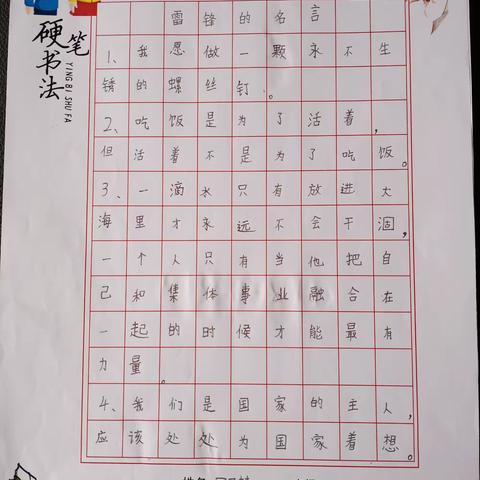 硬笔书法
YING BI SHU FA
雷锋的名言
1、我愿做一颗永不生
锈的螺丝钉。
2、吃饭是为了活着,
但活着不是为了吃饭。
3、一滴水只有放进大
海里才永远不会干涸,
一个人只有当他把自
己和集体事业融合在
一起的时候才能最有
力量。
4、我们是国家的主人,
应该处处为国家着想。